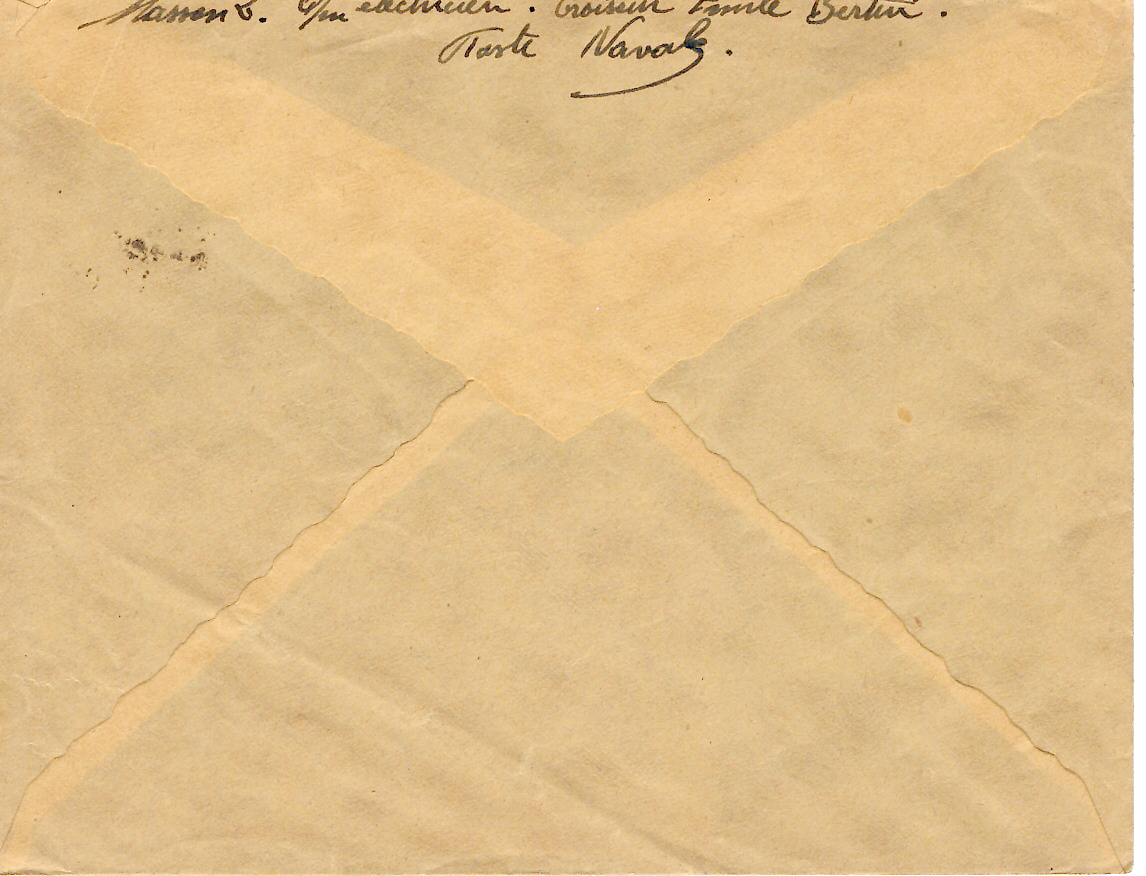 Masson L. Q/m electricien. Croiseur Emile Bertin.
Poste Navale.